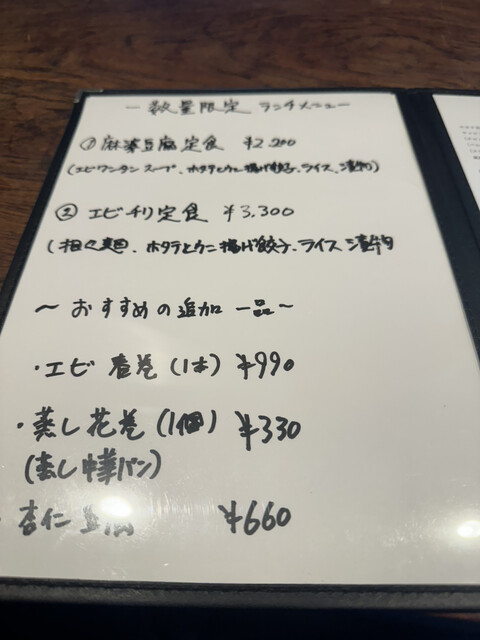 －数量限定 ランチメニュー
① 麻婆豆腐定食 ¥2,200
(エビワンタンスープ、ホタテとウニ揚げ餃子、ライス、漬物)
② エビチリ定食 ¥3,300
(担々麺、ホタテとウニ揚げ餃子、ライス 漬物
～ おすすめの追加 一品～
・エビ春巻(1本) ¥990
・蒸し花巻(1個) ¥330
(蒸し中華パン)
・杏仁豆腐 ¥660